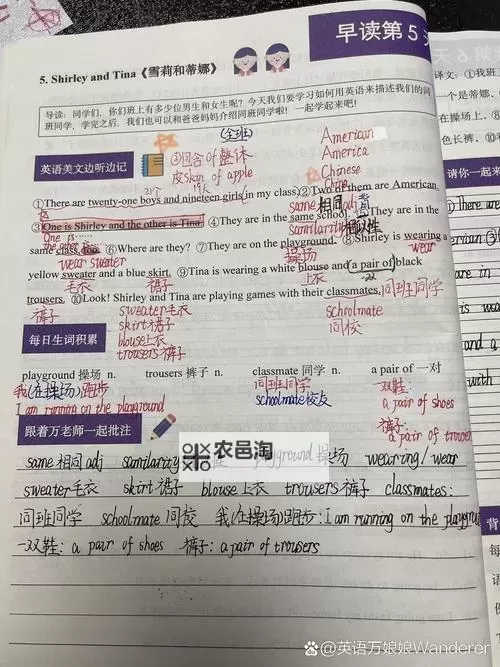 早读第5天
5. Shirley and Tina《雪莉和蒂娜》
导读：同学们，你们班上有多少位男生和女生呢？今天我们要学习如何用英语来描述我们的同
班同学，学完之后，我们也可以和爸爸妈妈介绍同班同学啦！一起学起来吧！
(全班)
American
America
Chinese
China
英语美文边听边记
②包含of整体
皮skin of apple
21个
19人
①There are twenty-one boys and nineteen girls in my class.②Two of them are American.
same 相同 adj
③One is Shirley and the other is Tina. ④They are in the same school. ⑤They are in the
One is
the other is
same class, too. ⑥Where are they? ⑦They are on the playground. ⑧Shirley is wearing a
wear sweater
操场
wear
yellow sweater and a blue skirt. ⑨Tina is wearing a white blouse and (a pair of) black
毛衣
裙子
上衣
trousers. ⑩Look! Shirley and Tina are playing games with their classmates. 同班同学
裤子
sweater毛衣
skirt裙子
blouse上衣
trousers裤子
schoolmate
同校
每日生词积累
playground 操场 n. trousers 裤子 n. classmate 同学 n. a pair of 一对
我(在操场)跑步
I am running on the playground
同班同学
schoolmate校友
一双鞋:
a pair of shoes
裤子:
a pair of trousers
跟着万老师一起批注
农邑淘
same 相同 adj playground 操场 wearing/wear
sweater毛衣 skirt裙子 blouse上衣 trousers裤子 classmates:
同班同学 schoolmate同校 我(在操场)跑步: i am running on the playground
一双鞋: a pair of shoes 裤子: a pair of trousers
请你一起来
@英语万娘娘Wanderer